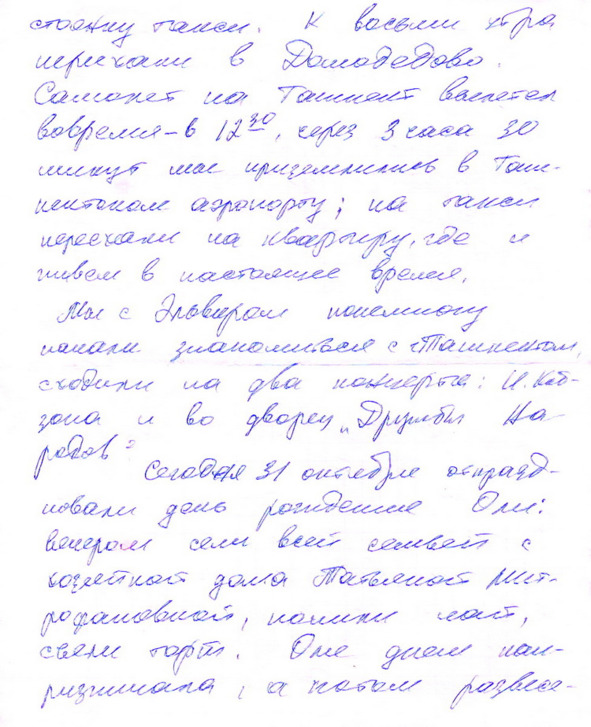 стоянку такси. К восьми утра
переехали в Домодедово.
Самолет на Ташкент вылетел
вовремя – в 12 30, через 3 часа 30
минут мы приземлились в Таш-
кентском аэропорту; на такси
переехали на квартиру, где и
живем в настоящее время.
Мы с Эльвирой понемногу
начали знакомиться с г. Ташкентом,
сходили на два концерта: И. Коб-
зона и во дворец „Дружбы На-
родов"
Сегодня 31 октября отпразд-
новали день рождения Оли:
вечером сели всей семьей с
хозяйкой дома Татьяной Мит-
рофановной, попили чай,
съели торт. Оля днем
а потом